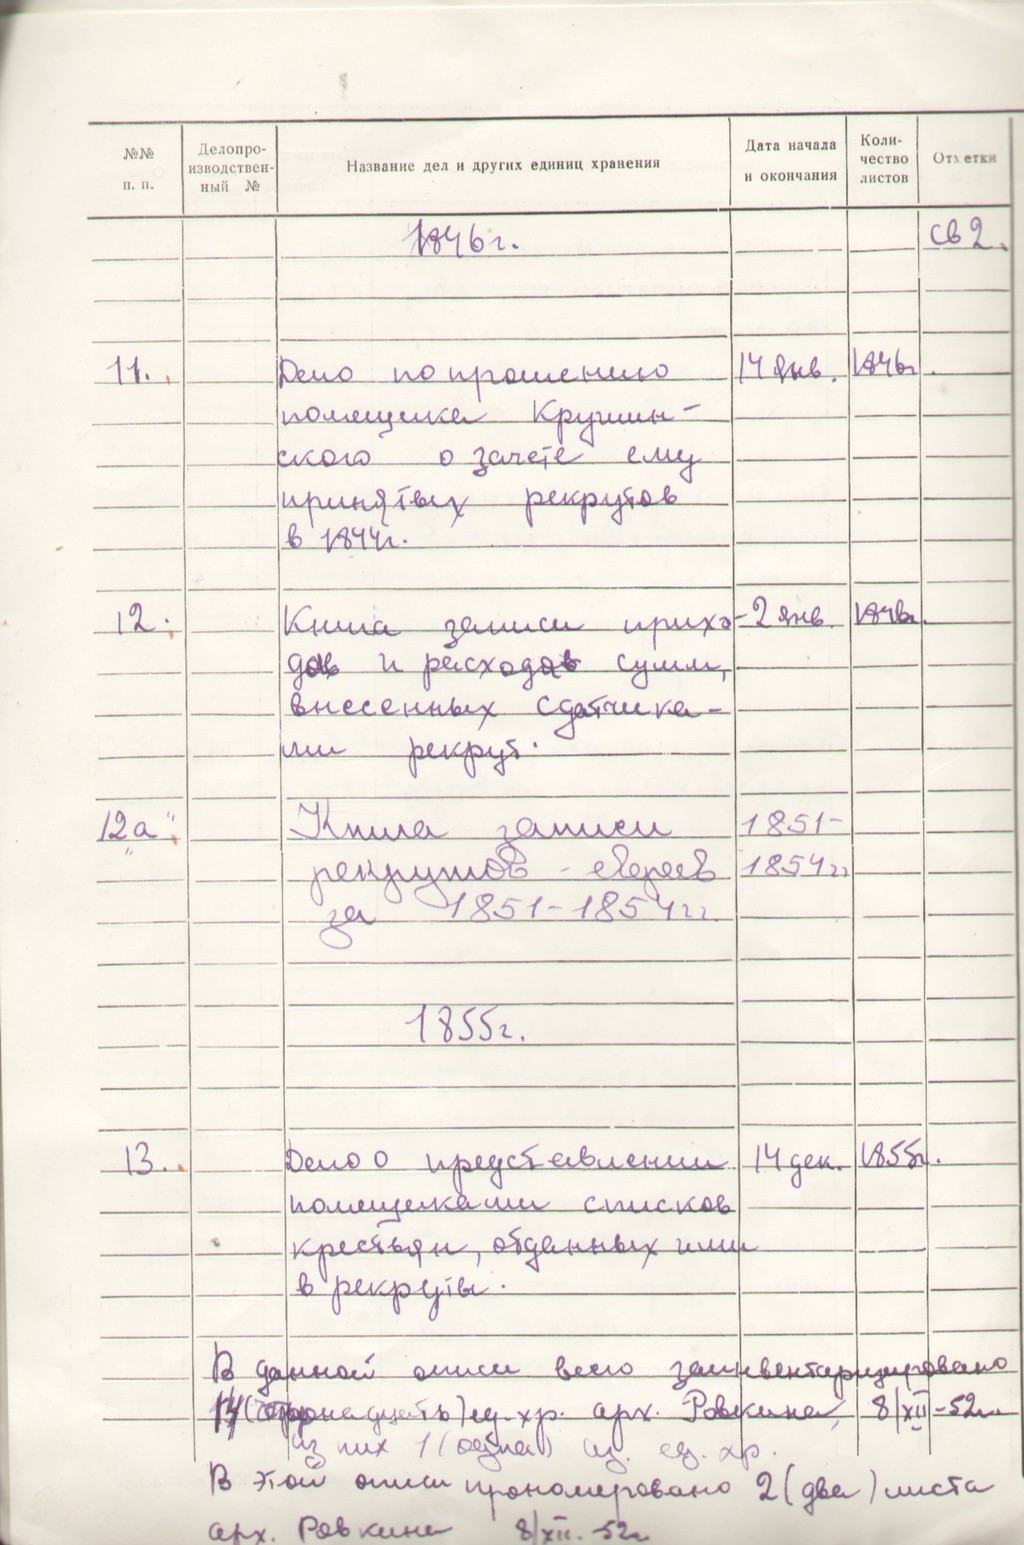 №№ п. п. Делопро-изводствен-ный № Название дел и других единиц хранения Дата начала и окончания Коли-чество листов Отметки
1846г. св 2.
11. Дело по прошению 14 янв. 1846г.
помещика Крушин-
ского о зачете ему
принятых рекрутов
в 1844г.
12. Книга записи прихо- 2 янв. 1846г.
дов и расходов сумм,
внесенных сдатчика-
ми рекрут.
12а" Книга записи 1851-
рекрутов - евреев 1854гг
за 1851-1854гг.
1855г.
13. Дело о представлении 14 дек. 1855г.
помещиками списков
крестьян, отданных ими
в рекруты.
В данной описи всего заинвентаризировано
14 ед. хр. арх. Ровкина, 8/XII-52г.
из них 1 (одна) ед. хр.
В этой описи прономеровано 2 (два) листа
арх. Ровкина 8/XII-52г